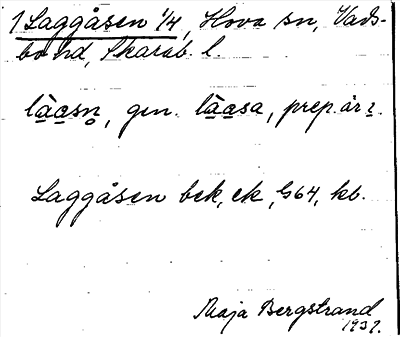 1 Laggåsen 1/4, Hova sn, Vads-
bo hd, Skarab. l.
làcsn, gen. làcsa, prep. år
Laggåsen bek, ek, G64, kb.
Maja Bergstrand
1937.